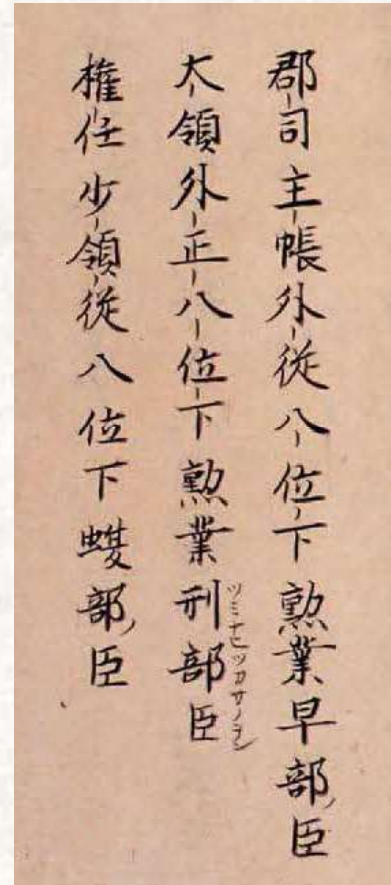 郡司主帳外従八位下勲業早部臣
大領外正八位下勲業刑部臣
ツミナヒツカサノヲン
権任少領従八位下蝮部臣